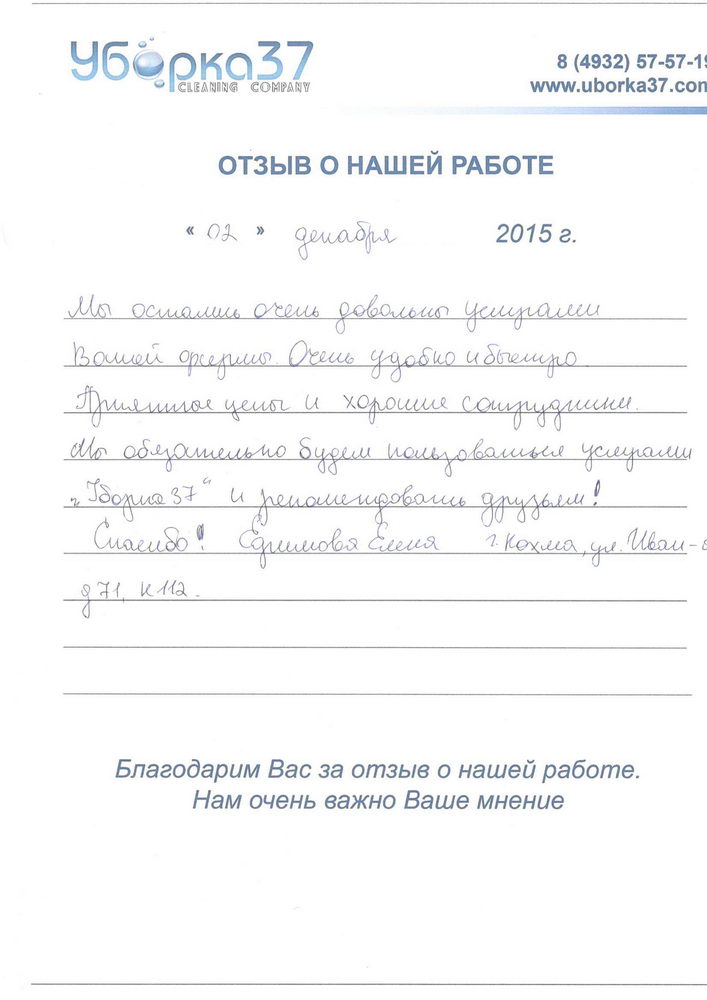 Уборка37
CLEANING COMPANY
8 (4932) 57-57-19
www.uborka37.com
ОТЗЫВ О НАШЕЙ РАБОТЕ
« 02 » декабря 2015 г.
Мы остались очень довольны услугами
Вашей фирмы. Очень удобно и быстро
Приятные цены и хорошие сотрудники.
Мы обязательно будем пользоваться услугами
„Уборка 37“ и рекомендовать друзьям!
Спасибо! Ефимова Елена г. Кохма, ул. Иван-
д 71, к 112.
Благодарим Вас за отзыв о нашей работе.
Нам очень важно Ваше мнение